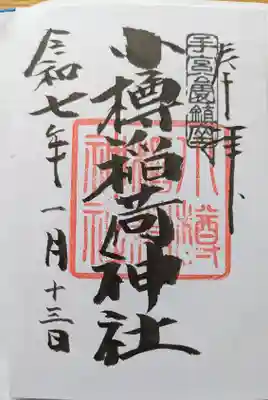 奉拝
小樽稲荷神社
小樽
稲荷
神社
令和七年一月十三日